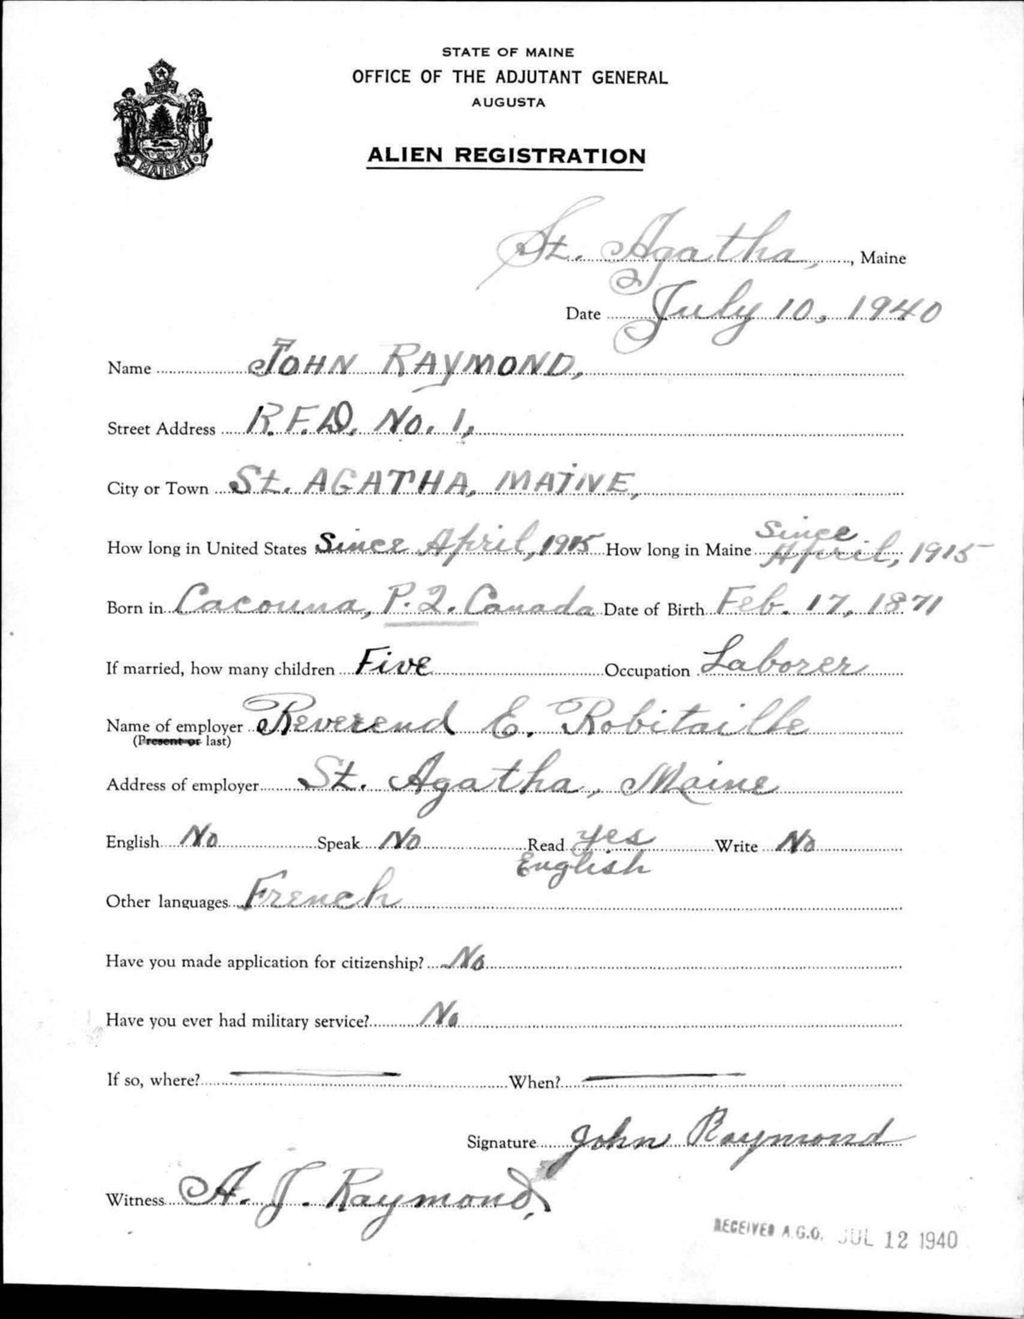 STATE OF MAINE
OFFICE OF THE ADJUTANT GENERAL
AUGUSTA
ALIEN REGISTRATION
MAINE
St. Agatha, , Maine
Date July 10, 1940
Name JOHN RAYMOND,
Street Address R.F.D. No. 1,
City or Town St. AGATHA, MAINE,
How long in United States Since April, 1915 How long in Maine Since April, 1915
Born in Cacouna, P.Q. Canada Date of Birth Feb. 17, 1871
If married, how many children Five Occupation Laborer
Name of employer Reverend E. Robitaille
(Present or last)
Address of employer St. Agatha, Maine
English No Speak No Read yes Write No
English
Other languages French
Have you made application for citizenship? No
Have you ever had military service? No
If so, where? When?
Signature John Raymond
Witness A. J. Raymond,
RECEIVED A.G.O. JUL 12 1940